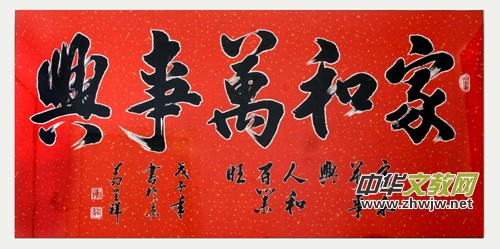 家和萬事興
家和
萬事
興
人和
百業
旺
戊子年
書於京
中华文教网
www.zhwjw.net